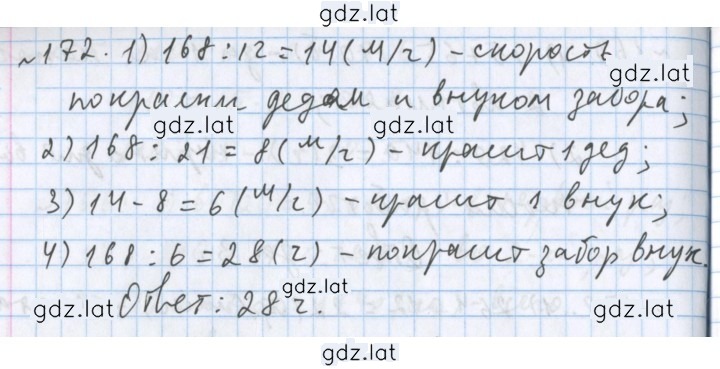 gdz.lat
№172. 1) 168:12=14(м/ч) - скорость
gdz.lat
покраски дедом и внуком забора;
gdz.lat gdz.lat
2) 168:21=8(м/ч) - красит 1 дед;
3) 14-8=6(м/ч) - красит 1 внук;
4) 168:6=28(ч) - покрасит забор внук.
Ответ: 28 ч.
gdz.lat gdz.lat gdz.lat
gdz.lat